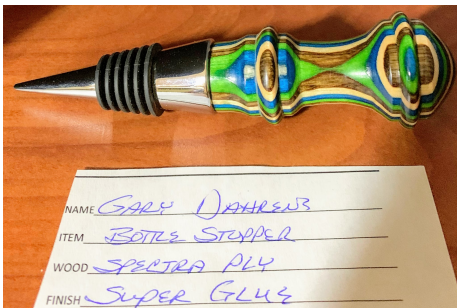 NAME GARY DAHRENS
ITEM BOTTLE STOPPER
WOOD SPECTRA PLY
FINISH SUPER GLUE